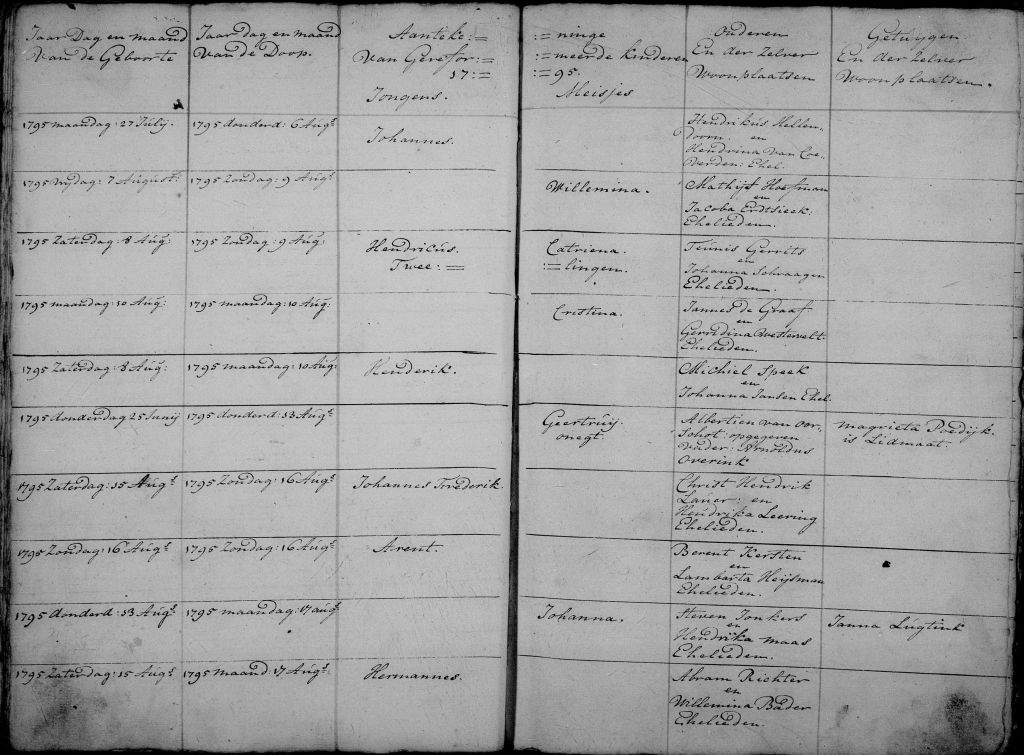 Jaar Dag en maand
Van de Geboorte
Jaar dag en maand
van de Doop.
Aanteke:=
Van Gerefor:=
17:=
Jongens.
:=ninge
:=meerde kinderen
:=95.
Meisjes
Ouderen
En der zelver
Woonplaatsen
Getuijgen
En der zelver
Woonplaatsen.
1795 maandag: 27 Julij. 1795 donderd: 6 Augt Johannes.
Hendrikus Hellen-
doorn en
Hendrina van Coe-
verden: Ehel.
1795 vrijdag: 7 August: 1795 Zondag: 9 Augt Willemina.
Mathijs Hoefman
en
Jacoba Erdtsieck:
Ehelieden.
1795 Zaterdag: 8 Aug: 1795 Zondag: 9 Aug: Hendricus. Catriena.
Twee:= :=lingen.
Teunis Gerrits
en
Johanna Schraagen
Ehelieden.
1795 maandag: 10 Aug: 1795 maandag: 10 Aug: Cristina.
Jannes de Graaf
en
Gerridina Westervelt:
Ehelieden.
1795 Zaterdag: 8 Aug: 1795 maandag: 10 Aug: Henderik.
Michiel Speek
en
Johanna Jansen Ehel.
1795 donderdag 25 Junij 1795 donderd: 13 Augt Geertruij.
onegt.
Albertien van Oor-
Schot: opgegeven
Vader: Arnoldus
Overink
magrieta Poedijk.
is Lidmaat.
1795 Zaterdag: 15 Augt 1795 Zondag: 16 Augt Johannes Frederik
Christ Hendrik
Lauer: en
Hendrika Leering
Ehelieden.
1795 Zondag: 16 Augt 1795 Zondag: 16 Augt Arent.
Berent Kersten
en
Lambarta Heijsman
Ehelieden.
1795 donderd: 13 Augt 1795 maandag: 17 augt Johanna.
Steven Jonkers
en
Hendrika maas
Ehelieden.
Janna Lugtink
1795 Zaterdag: 15 Augt 1795 maand: 17 Augt Hermannes.
Abram Richter
en
Willemina Bader
Ehelieden.